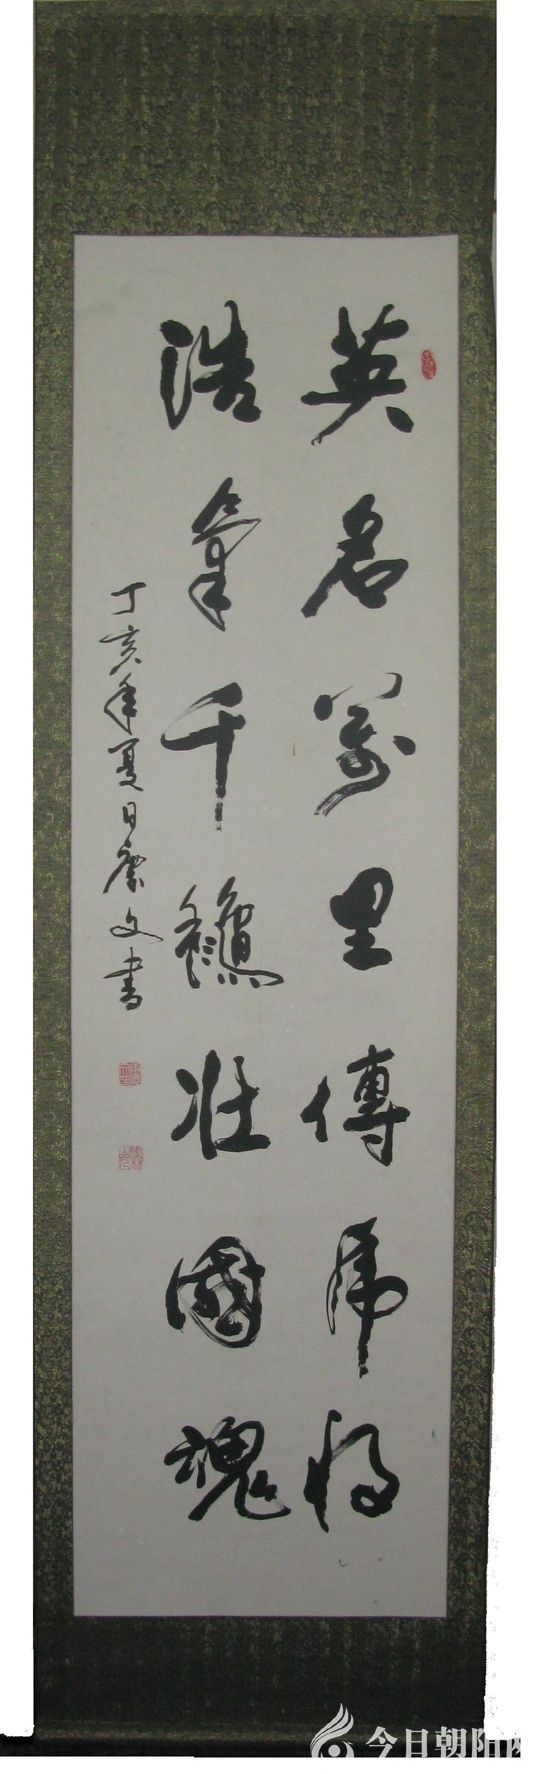 英名萬里傳虎將
浩氣千龝壯國魂
丁亥年夏日康文書
今日朝阳网